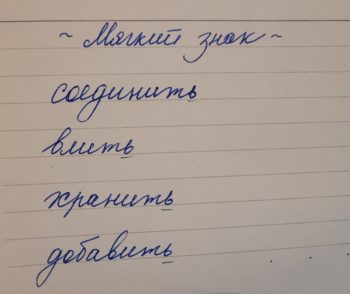 ~ Мягкий знак ~
соединить
влить
хранить
добавить